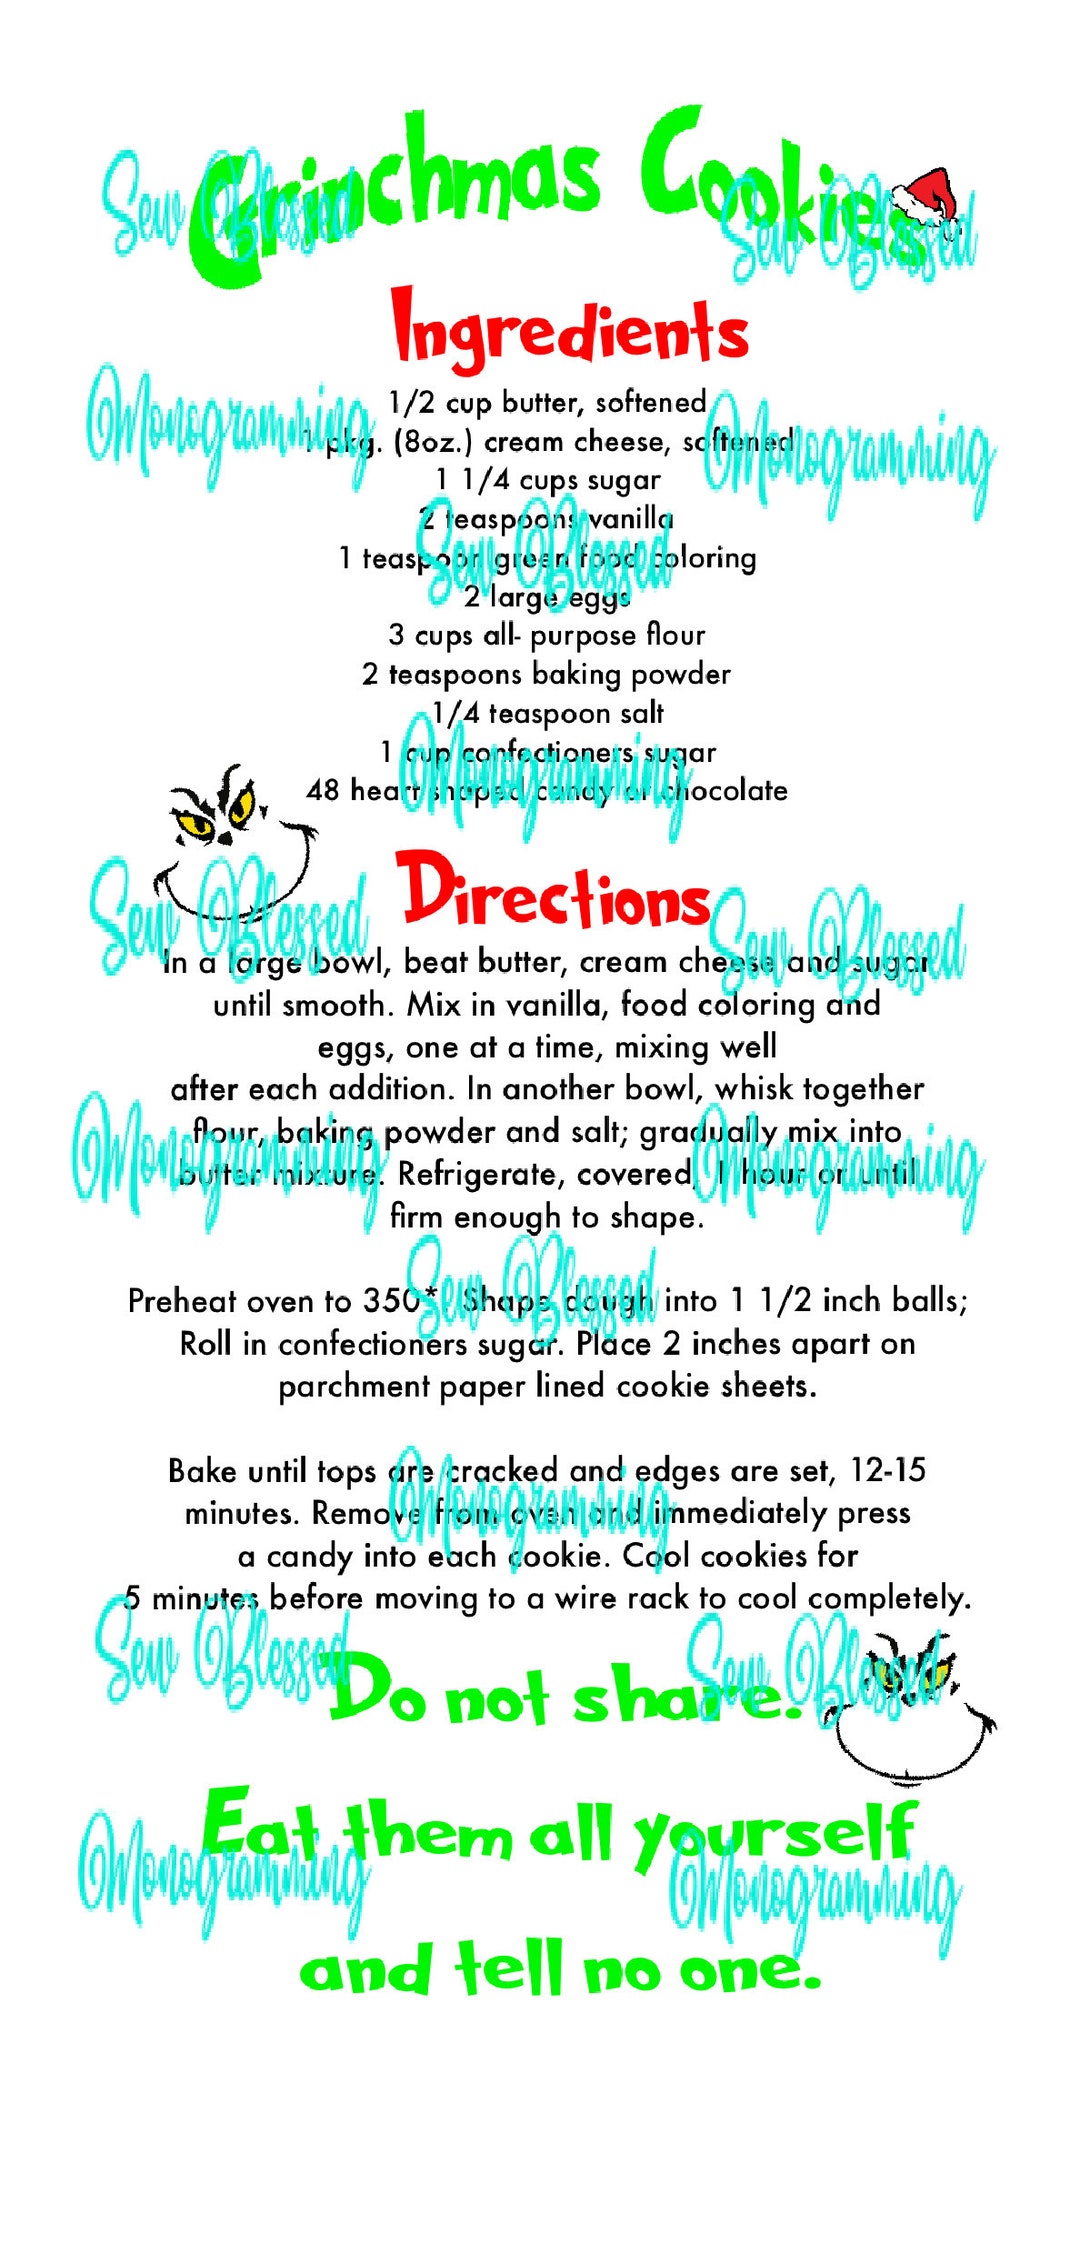 Grinchmas Cookies
Sew Blessed
Sew Blessed
Ingredients
Monogramming
Monogramming
1/2 cup butter, softened
1 pkg. (8oz.) cream cheese, softened
1 1/4 cups sugar
2 teaspoons vanilla
Sew Blessed
1 teaspoon green food coloring
2 large eggs
3 cups all- purpose flour
2 teaspoons baking powder
1/4 teaspoon salt
1 cup confectioners sugar
Monogramming
48 heart shaped candy or chocolate
Directions
Sew Blessed
Sew Blessed
In a large bowl, beat butter, cream cheese and sugar
until smooth. Mix in vanilla, food coloring and
eggs, one at a time, mixing well
after each addition. In another bowl, whisk together
flour, baking powder and salt; gradually mix into
Monogramming
Monogramming
butter mixture. Refrigerate, covered, 1 hour or until
firm enough to shape.
Sew Blessed
Preheat oven to 350*. Shape dough into 1 1/2 inch balls;
Roll in confectioners sugar. Place 2 inches apart on
parchment paper lined cookie sheets.
Bake until tops are cracked and edges are set, 12-15
Monogramming
minutes. Remove from oven and immediately press
a candy into each cookie. Cool cookies for
5 minutes before moving to a wire rack to cool completely.
Sew Blessed
Sew Blessed
Do not share.
Eat them all yourself
Monogramming
Monogramming
and tell no one.